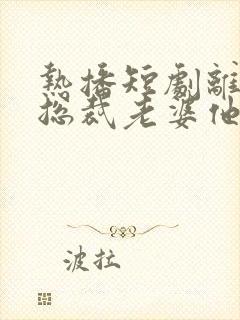 熱播短劇離
總裁老婆他
波拉